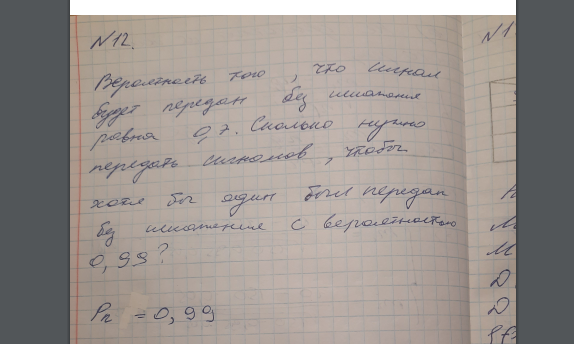 N12.
Вероятность того, что сигнал
будет передан без искажения
равна 0,7. Сколько нужно
передать сигналов, чтобы
хотя бы один был передан
без искажения с вероятностью
0,99?
Pn = 0,99
N1
M
M
D
D